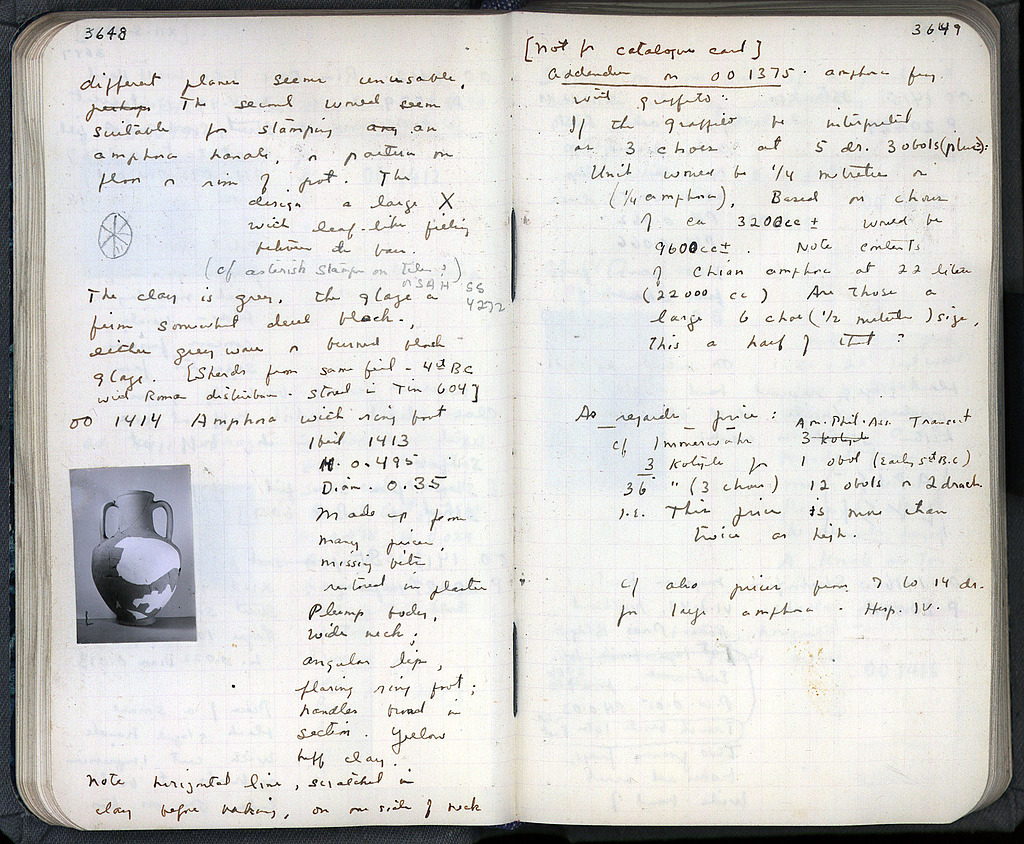 3648
different planes seems unusable.
perhaps The second would seem
suitable for stamping any an
amphora handle, or pattern on
floor or rim of pot. The
design a large X
with leaf-like filling
between the bars.
(cf asterisk stamps on tiles:
on SAH SS
4272
The clay is grey, the glaze a
firm somewhat dull black.,
either grey ware or burned black
glaze. [Sherds from same fill - 4th BC
with Roman disturbance. stored in Tin 604]
OO 1414 Amphora with ring foot
Ibid 1413
H. 0.495
Diam. 0.35
Made up from
many pieces;
missing bits
restored in plaster
Plump body,
wide neck;
angular lip,
flaring ring foot;
handles broad in
section. Yellow
buff clay.
Note horizontal line, scratched in
clay before baking, on one side of neck
3649
[Not for catalogue card]
Addendum on OO 1375. amphora frag
with graffito:
If the graffito be interpreted
as 3 choes at 5 dr. 3 obols (plus):
Unit would be 1/4 metretes or
(1/4 amphora), Based on chous
of ca 3200cc ± would be
9600cc±. Note contents
of Chian amphora at 22 liters
(22000 cc) Are those a
large 6 choe (1/2 metrete) size,
this a half of that?
As regards price:
cf Immerwahr Am. Phil. Ass. Transact
3 kotyle
3 Kotyle for 1 obol (Early 5th B.C)
36 " (3 choes) 12 obols or 2 drach.
i.e. This price is more than
twice as high.
cf also prices from 7 to 14 dr.
for large amphora. Hesp. IV.